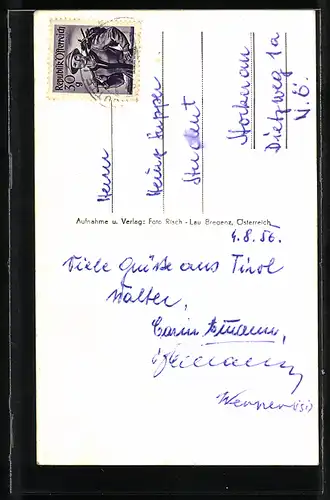 Republik Österreich
30 g
Herrn
Heinz
Student
Stockerau
Dietzweg 1a
N.Ö.
Aufnahme u. Verlag: Foto Risch-Lau Bregenz, Österreich
4.8.56.
Viele Grüße aus Tirol
Walter,
Werner